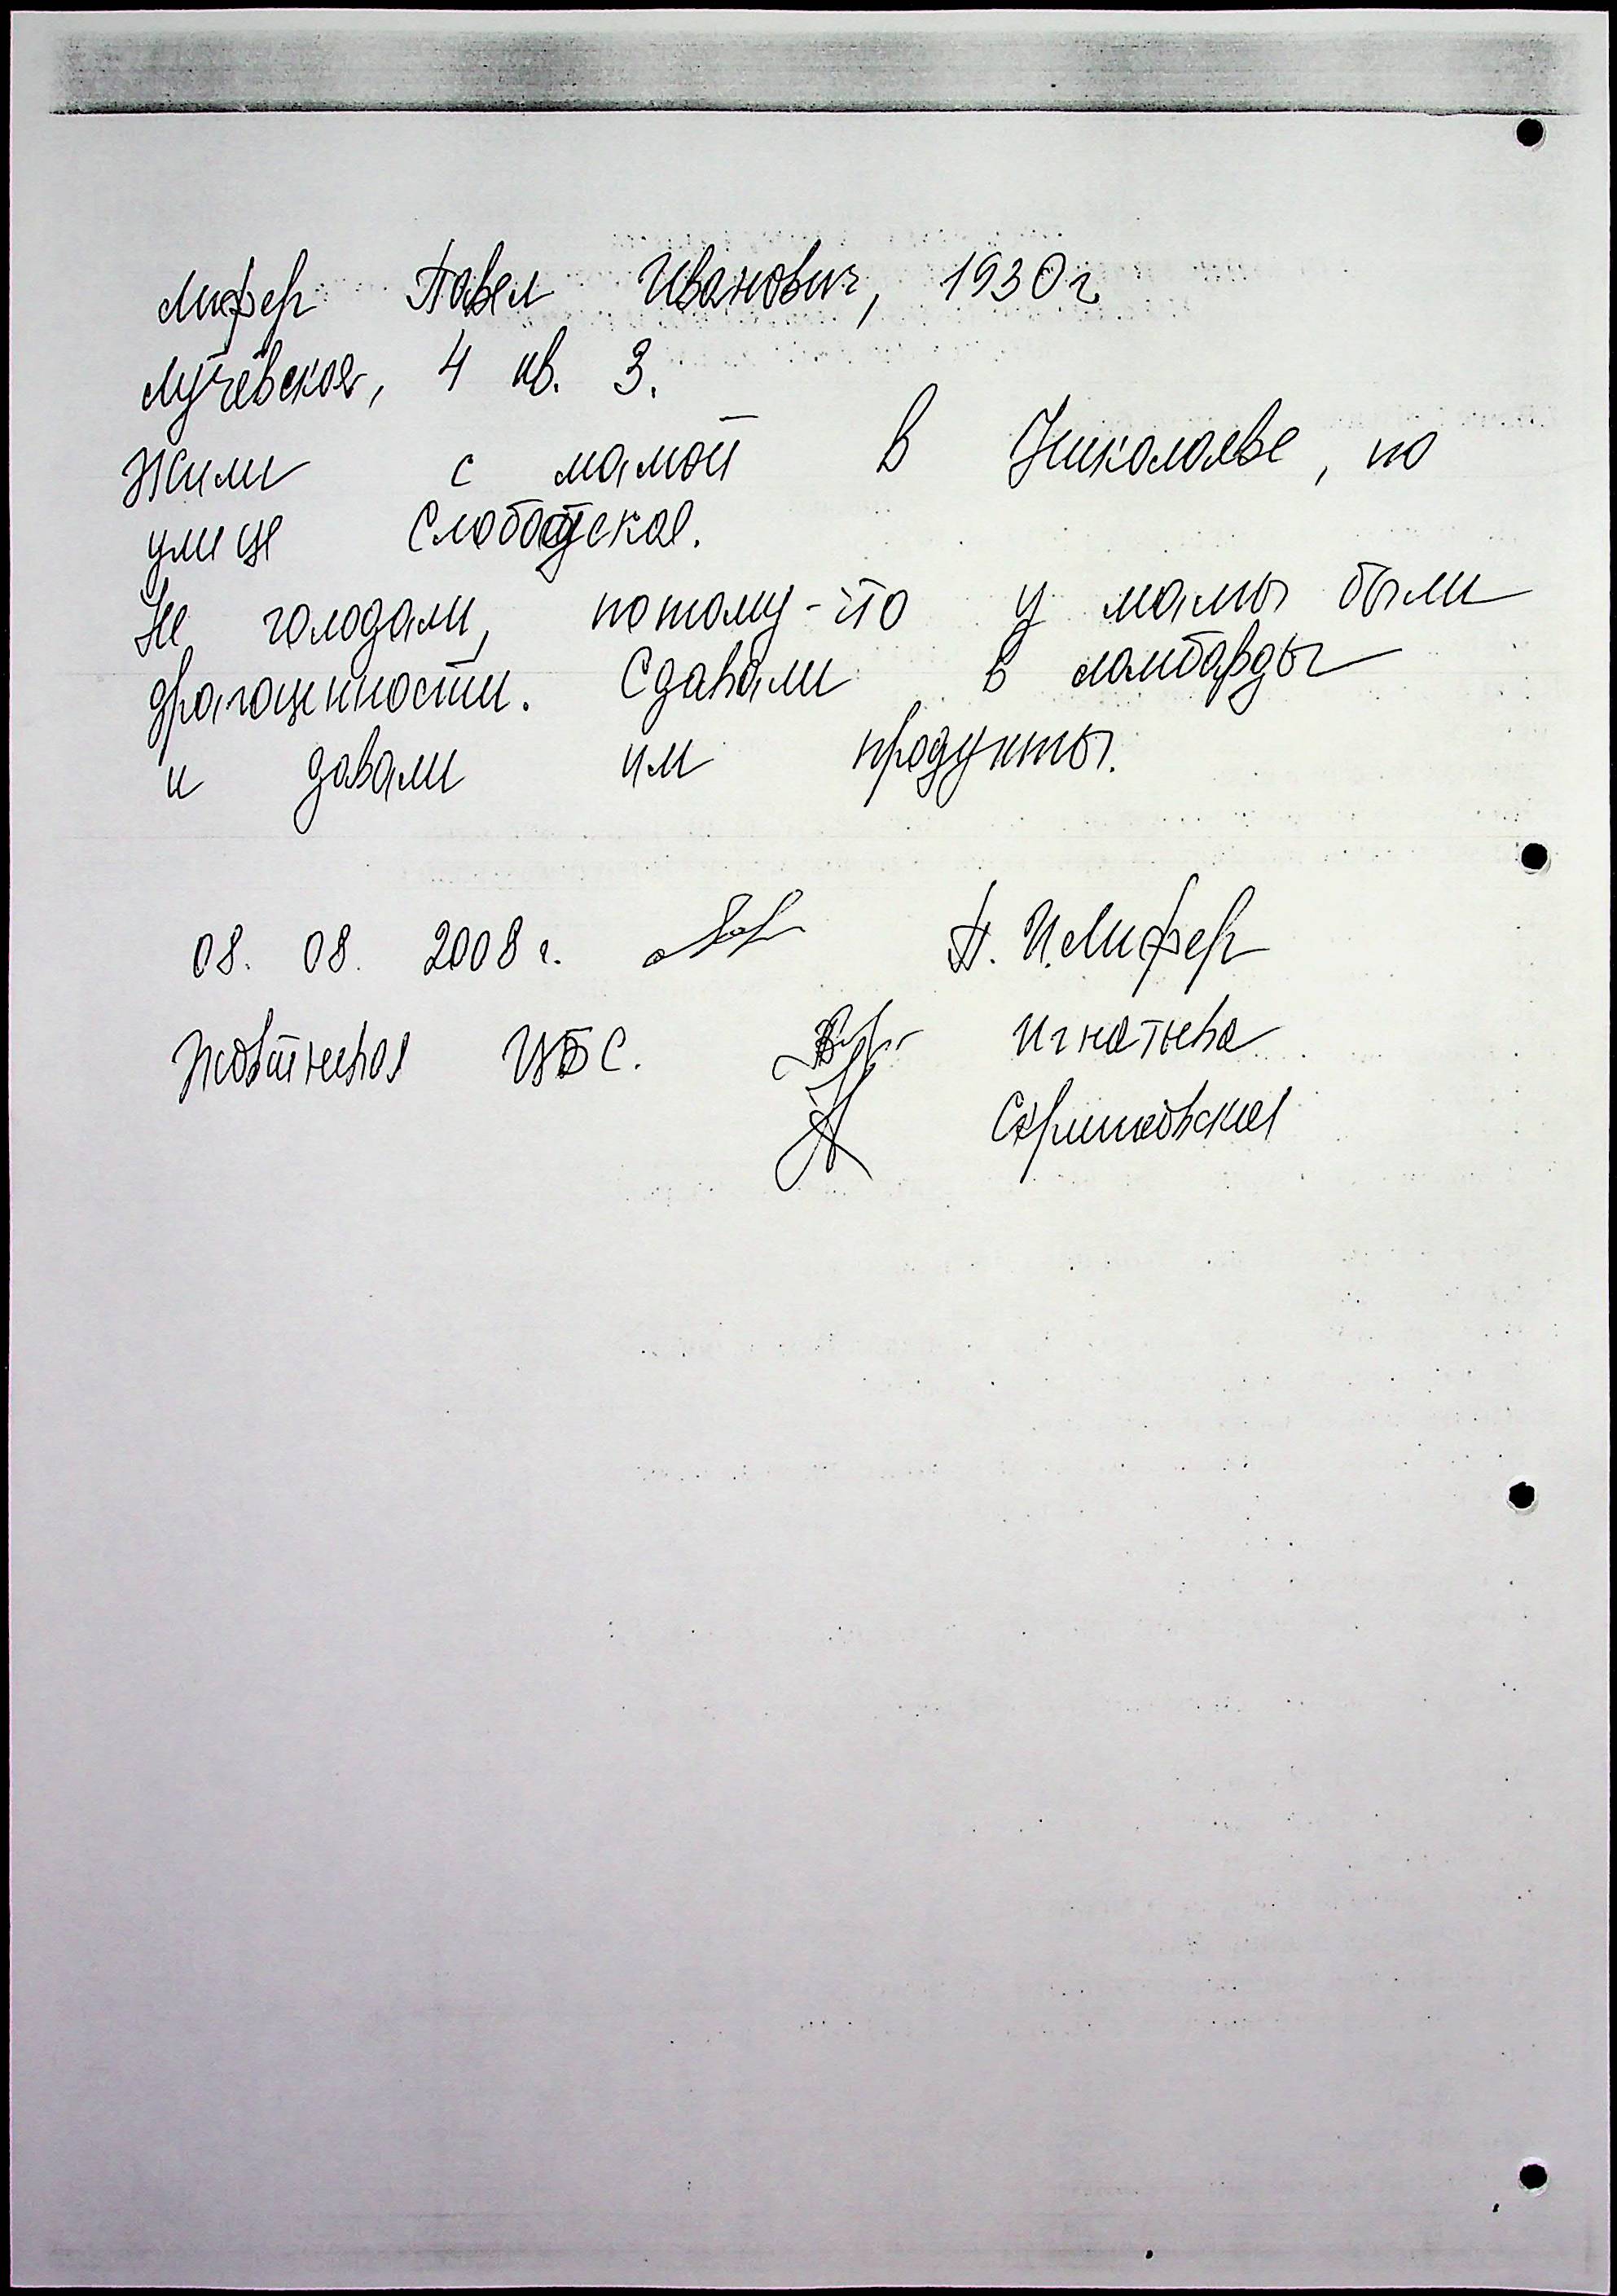 Лифер Павел Иванович, 1930г
Лучевская, 4 кв. 3.
Жили с мамой в Николаеве, по
улице Слободская.
Не голодали, потому-то у мамы были
драгоценности. Сдавали в ломбарды
и давали им продукты.
08. 08. 2008 г. П. И. Лифер
Жовтневая ЦБС. Игнатьева